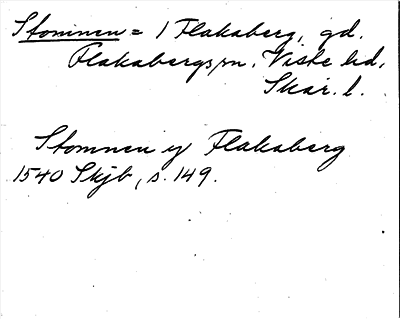 Stommen = 1 Flakaberg, gd.
Flakabergs sn. Viste hd,
Skar. l.
Stomnen y Flakaberg
1540 Skjb, s. 149.